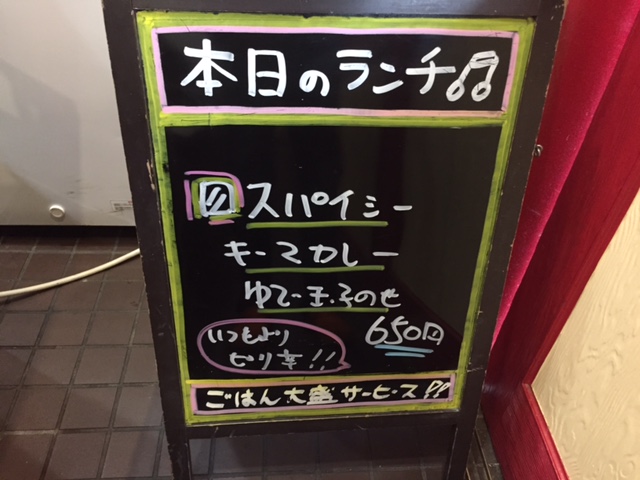 本日のランチ♫
スパイシー
キーマカレー
ゆでたまごのせ
650円
いつもより
ピリ辛!!
ごはん大盛サービス!!